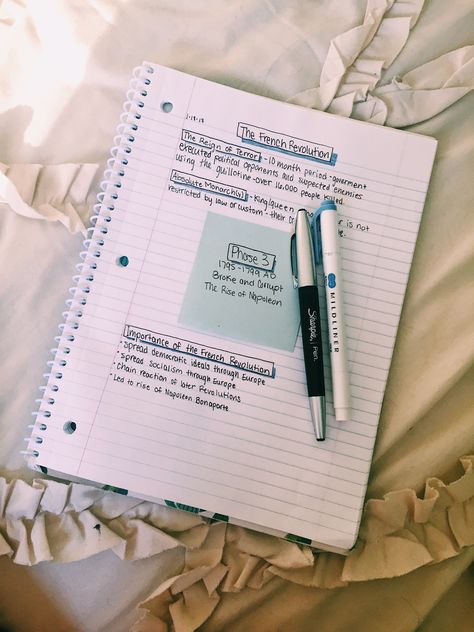 1-18-18
The French Revolution
The Reign of Terror - 10 month period - goverment
executed political opponents and suspected enemies
using the guillotine - over 16,000 people killed.
Absolute Monarch(y) - King/queen er is not
restricted by law or custom - their
Phase 3
1795-1799 AD
Broke and Corrupt
The Rise of Napoleon
Importance of the French Revolution
• Spread democratic ideals through Europe
• Spread socialism through Europe
• Chain reaction of later Revolutions
• Led to rise of Napoleon Bonaparte
Sharpie. Pen
MILDLINER